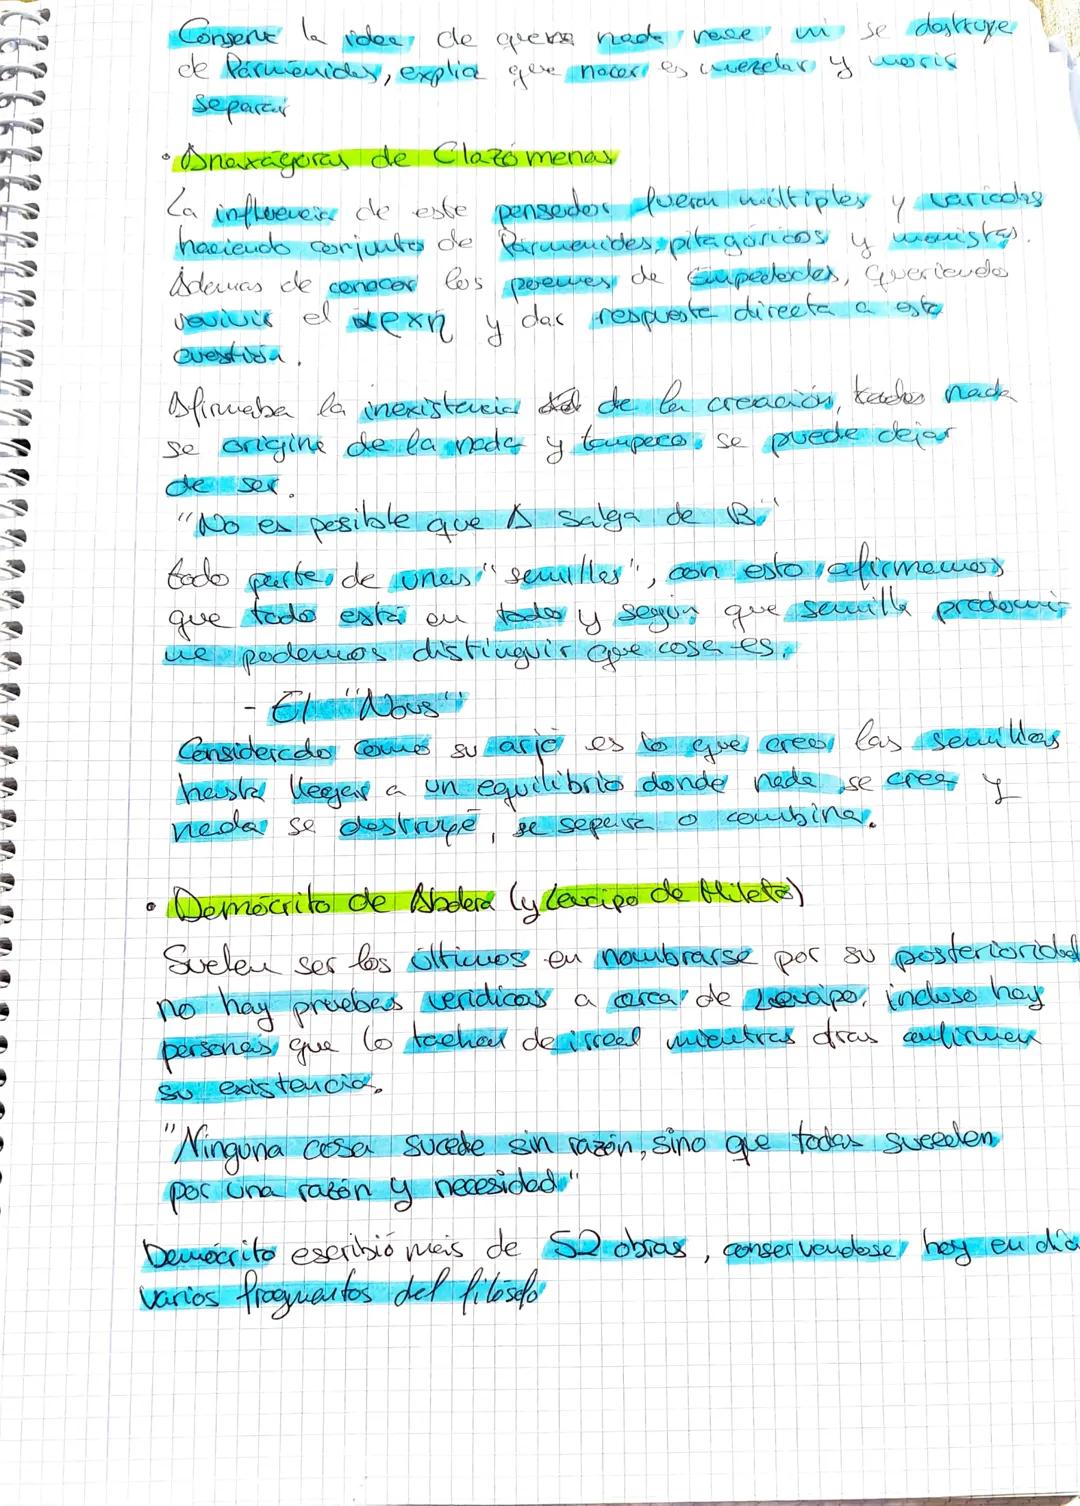 Conserva la idea de que nada nace ni se destruye
de Parménides, explia que nacer es mezclar y moris
separar
• Anaxágoras de Clazómenas
La influencia de este pensador fueron múltiples y variadas
haciendo conjunto de Parmenides, pitagóricos y monistas.
Además de conocer los poemas de Empedocles, queriendo
el αρχη y dar respuesta directa a esta
cuestión.
Afirmaba la inexistencia de la creación, nada
se origine de la nada y tampoco se puede dejar
de ser.
"No es posible que A salga de B."
todo parte de unas "semillas", con esto afirmamos
que todo está en todo y según que semilla predomi-
ne podemos distinguir que cosa es.
- El "Nous"
Considerado como su arjé es lo que creo las semillas
hasta llegar a un equilibrio donde nada se crea y
nada se destruye, se separa o combina.
• Demócrito de Abdera (y Leucipo de Mileto)
Suelen ser los últimos en nombrarse por su posterioridad
no hay pruebas veridicas a cerca de Leucipo, incluso hay
personas que lo tachan de irreal mientras otras confirman
su existencia.
"Ninguna cosa sucede sin razón, sino que todas suceden
por una razón y necesidad"
Demócrito escribió más de 52 obras, conservandose hoy en día
varios fragmentos del filósofo